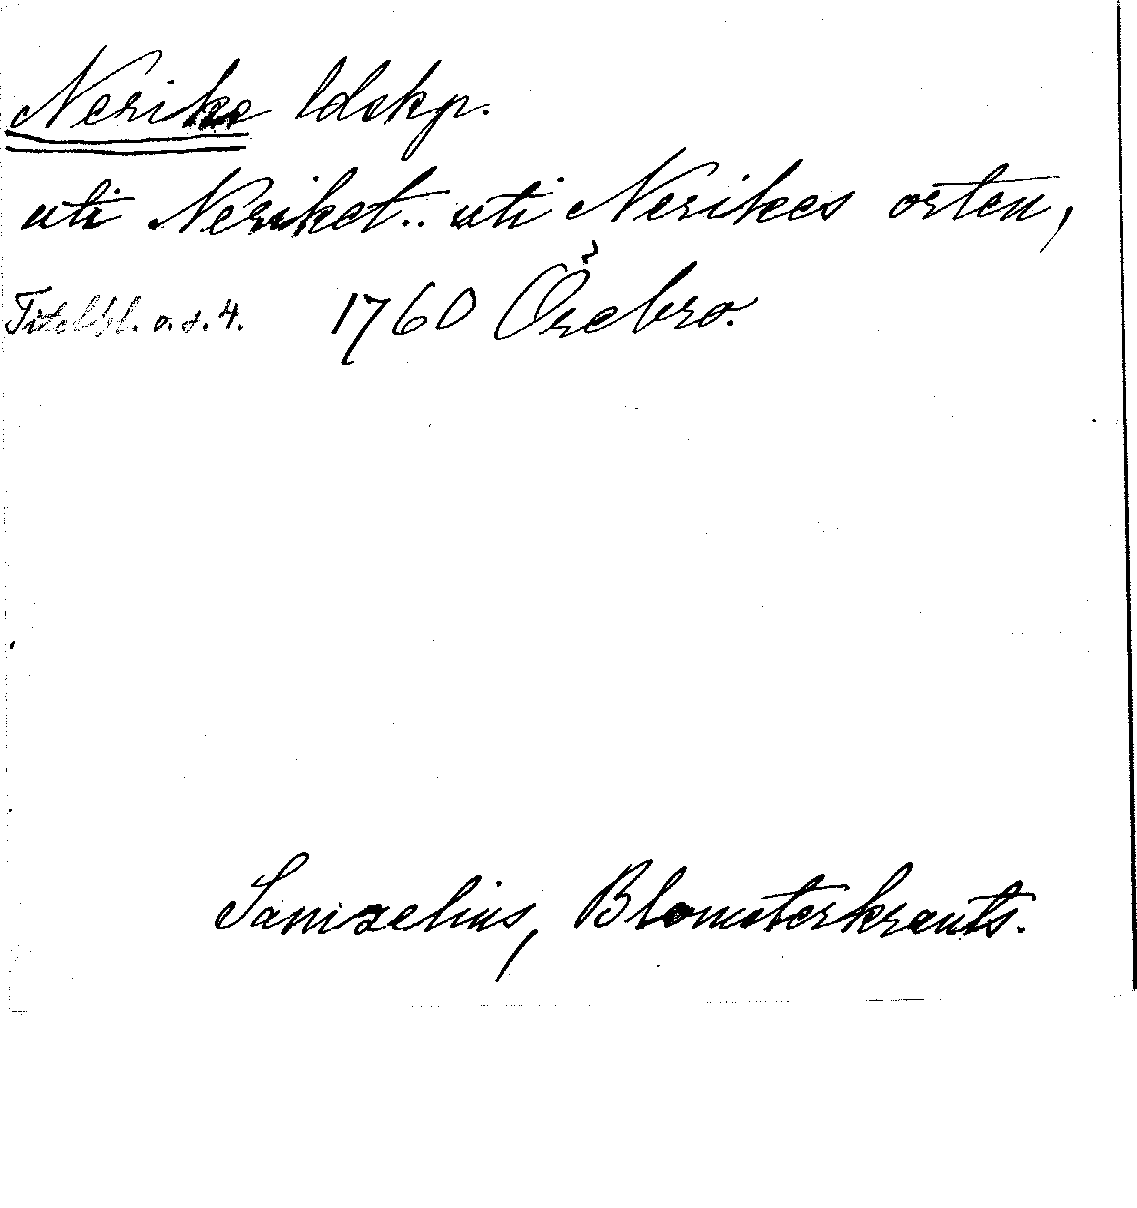 Nerike ldskp.
uti Neriket.. uti Nerikes orten,
Titelbl. o. s. 4. 1760 Örebro.
Samzelius, Blomsterkrants.